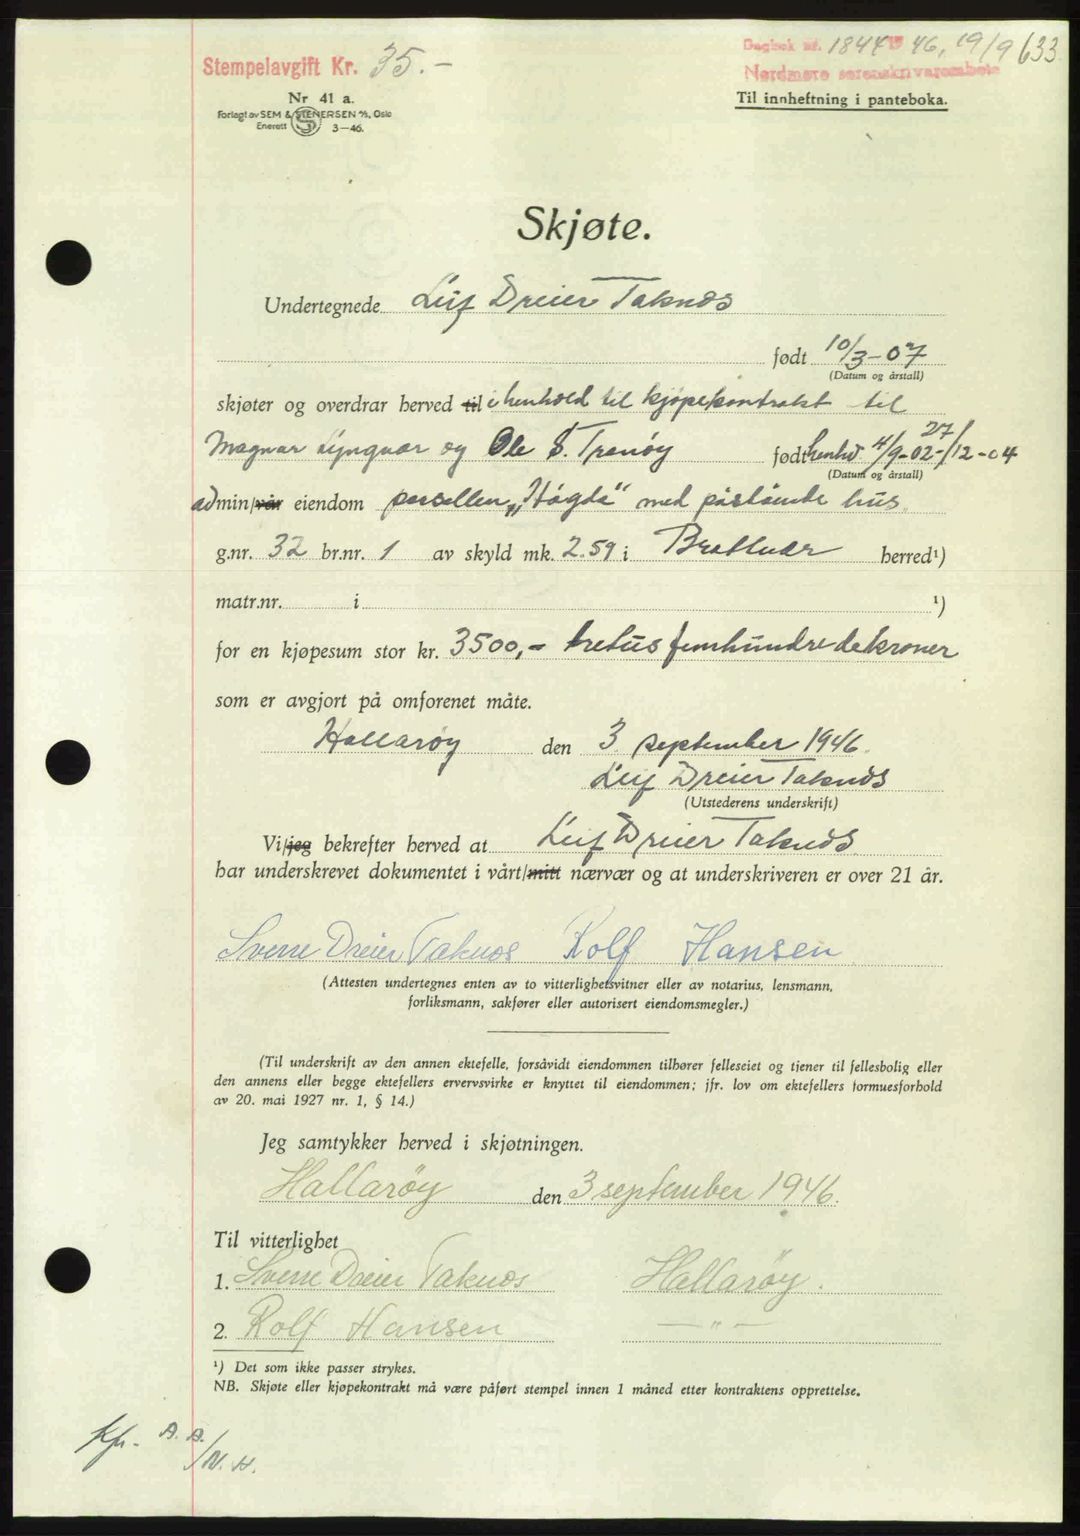 Stempelavgift Kr. 35.-
Dagbok nr. 1844 1946, 19/9 633
Nordmøre sorenskriverembete
Nr 41 a.
Til innheftning i panteboka.
Forlagt av SEM & STENERSEN A/S, Oslo
Enerett S 3-46.
Skjøte.
Undertegnede Leif Dreier Taknes
født 10/3-07
(Datum og årstall)
skjøter og overdrar herved til i henhold til kjøpekontrakt til
Magnar Lyngvær og Ole S. Tranøy født henhv. 4/9-02-27/12-04
(Datum og årstall)
min/vår eiendom parsellen „Høgda" med påstående hus
g.nr. 32 br.nr. 1 av skyld mk. 2.59 i Brattvær herred¹)
matr.nr. i ¹)
for en kjøpesum stor kr. 3500,- tretusfemhundrede kroner
som er avgjort på omforenet måte.
Hallarøy den 3 september 1946.
Leif Dreier Taknes
(Utstederens underskrift)
Vi/jeg bekrefter herved at Leif Dreier Taknes
har underskrevet dokumentet i vårt/mitt nærvær og at underskriveren er over 21 år.
Sverre Dreier Taknes Rolf Hansen
(Attesten undertegnes enten av to vitterlighetsvitner eller av notarius, lensmann,
forliksmann, sakfører eller autorisert eiendomsmegler.)
(Til underskrift av den annen ektefelle, forsåvidt eiendommen tilhører felleseiet og tjener til fellesbolig eller
den annens eller begge ektefellers ervervsvirke er knyttet til eiendommen; jfr. lov om ektefellers formuesforhold
av 20. mai 1927 nr. 1, § 14.)
Jeg samtykker herved i skjøtningen.
Hallarøy den 3 september 1946.
Til vitterlighet
1. Sverre Dreier Taknes Hallarøy.
2. Rolf Hansen — " —
¹) Det som ikke passer strykes.
NB. Skjøte eller kjøpekontrakt må være påført stempel innen 1 måned etter kontraktens opprettelse.
Kp. A.A.
/N.H.